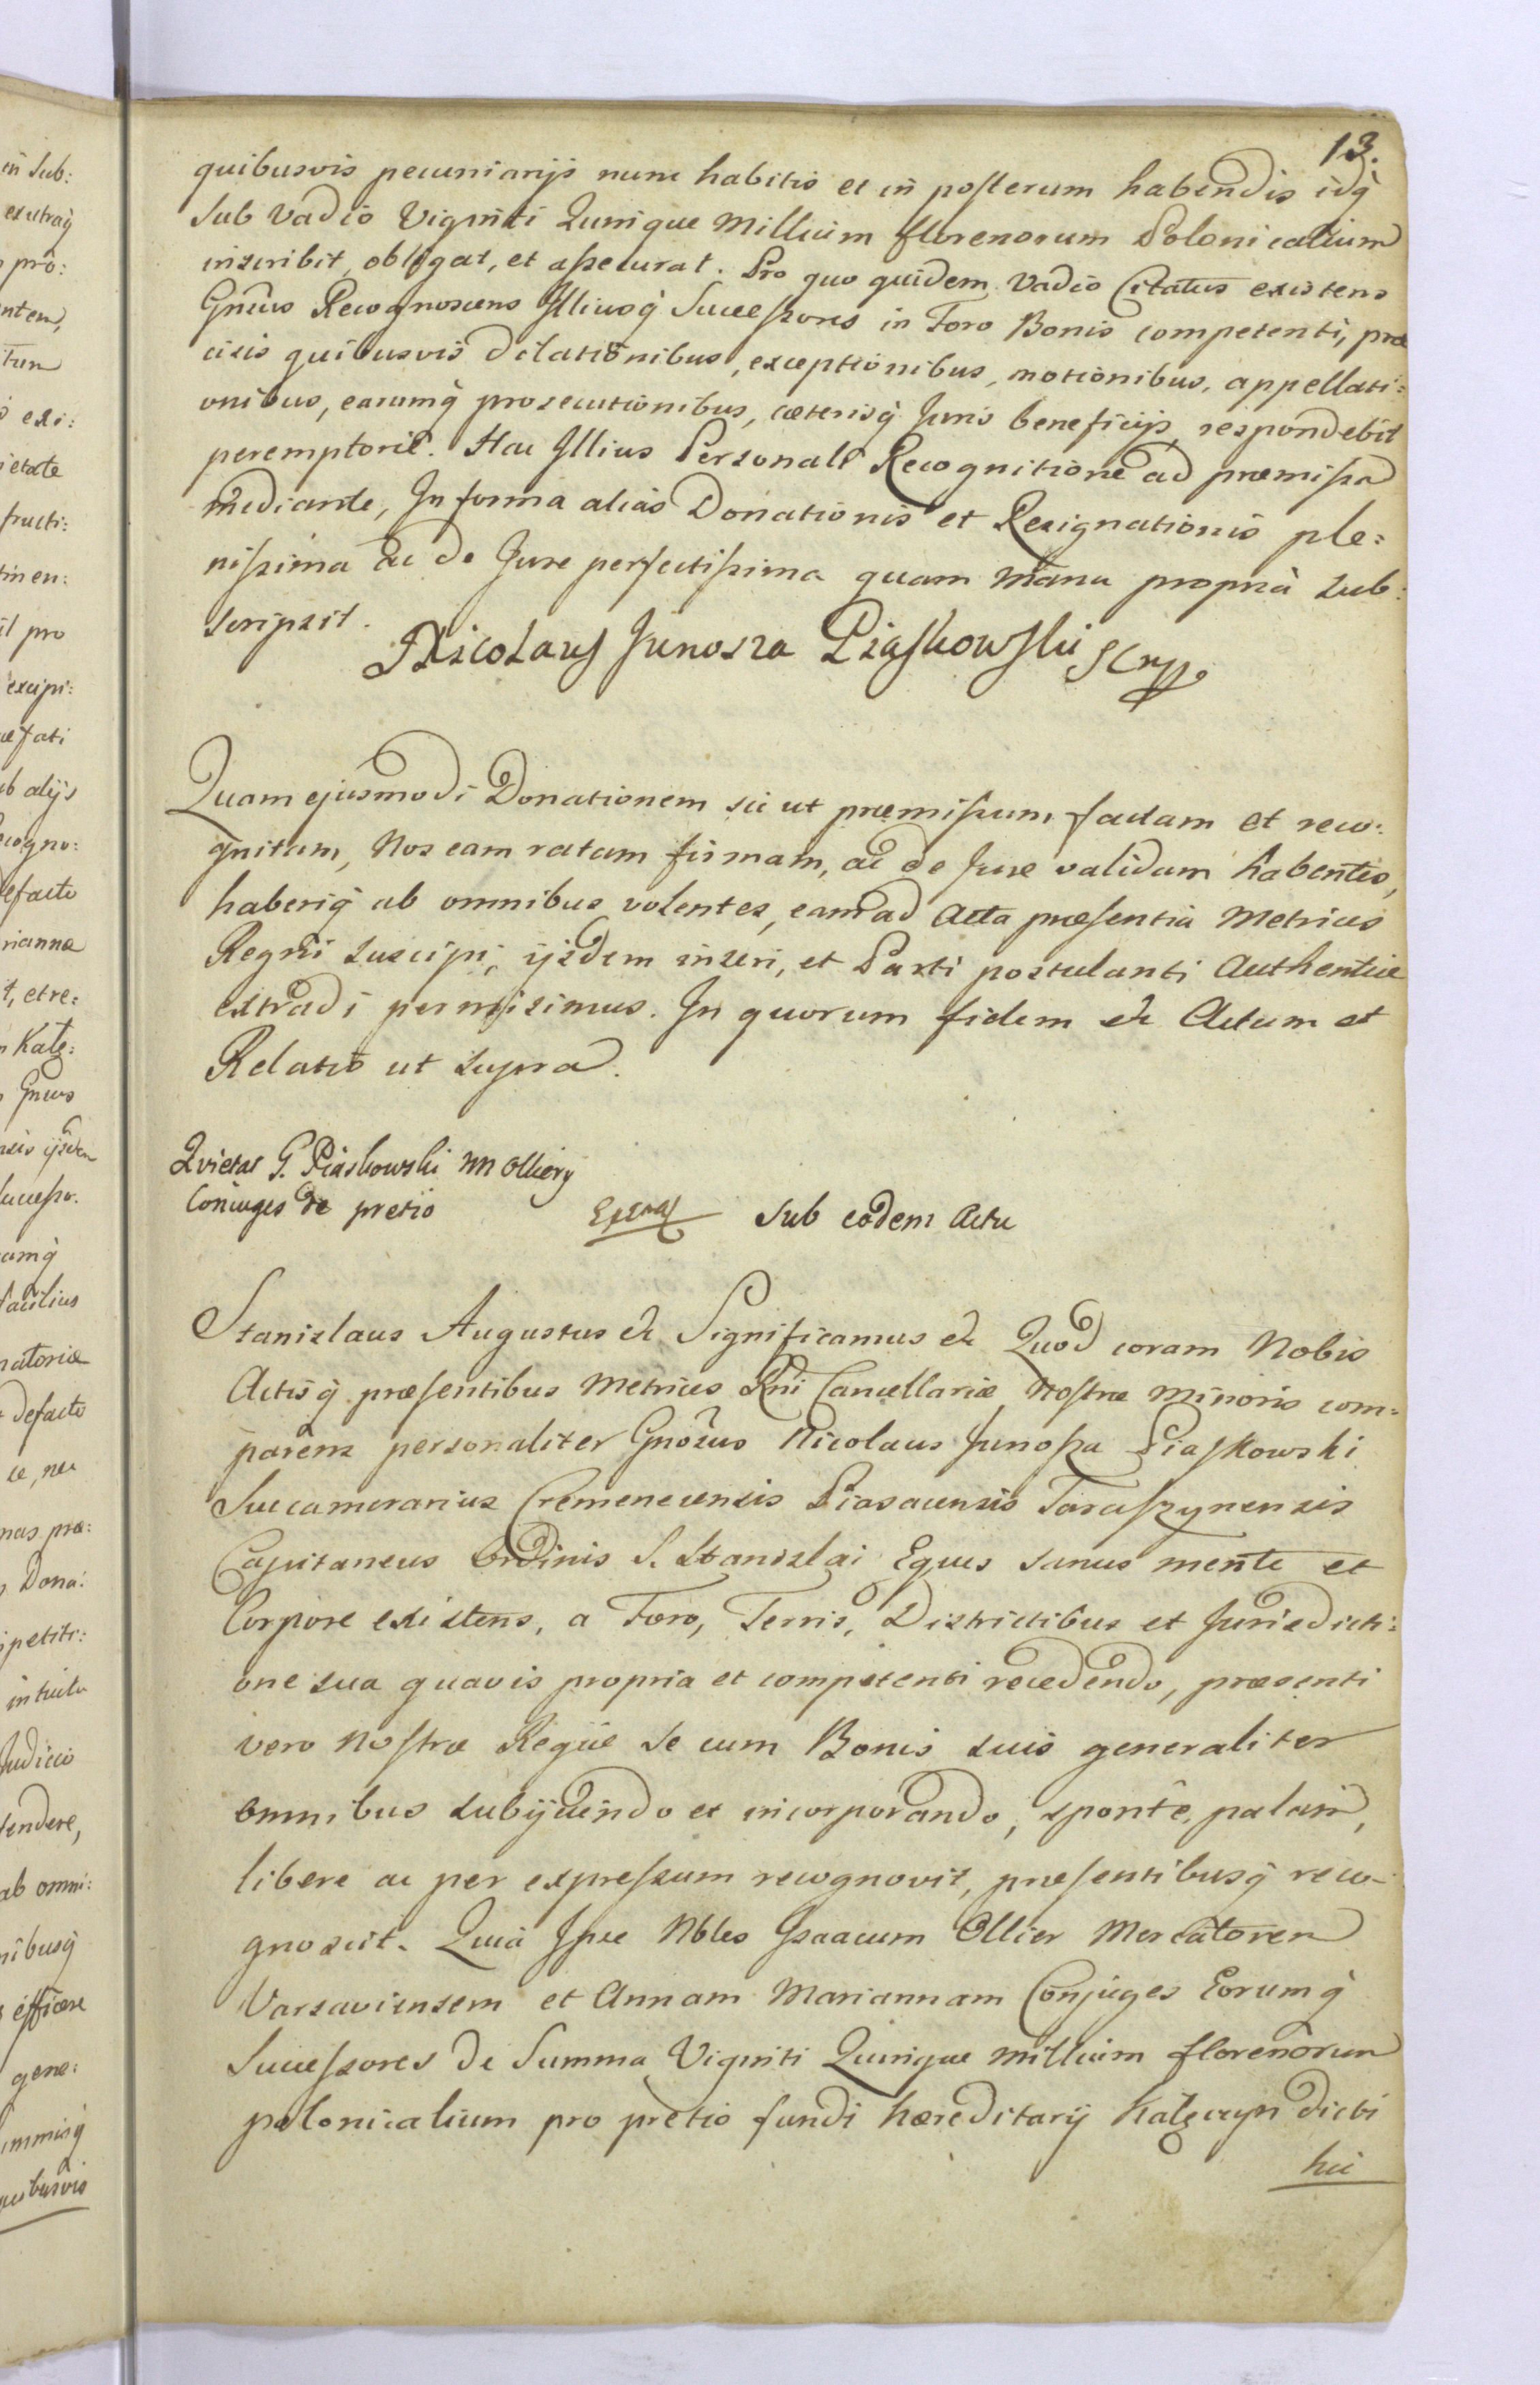 13.
quibusvis pecuniarijs nunc habitis et in posterum habendis idq̀
sub vadio Viginti Quinque Millium florenorum Polonicalium
inscribit, obligat, et assecurat. Pro quo quidem Vadio Citatus existens
Gnsus Recognoscens Illiusq̀ Successores in Foro Bonis competenti, præ
cisis quibusvis dilationibus, exceptionibus, motionibus, appellati:
onibus, earumq̀ prosecutionibus, cæterisq̀ Juris beneficijs, respondebit
peremptorie. Hac Illius Personali Recognitione ad præmissa
mediante, In forma alias Donationis et Resignationis ple:
nissima ac de Jure perfectissima quam manu propria sub:
scripsit.
Nicolaus Junosza Piaskowski
Quam ejusmodi Donationem sic ut præmissum, factam et reco:
gnitam, Nos eam ratam firmam, ac de Jure validam habentes,
haberiq̀ ab omnibus volentes, eam ad Acta præsentia Metrices
Regni suscipi, ijsdem inseri, et Parti postulanti Authentice
extradi permisimus. In quorum fidem &c Actum et
Relatio ut supra.
Quietat G. Piaskowski NN Olliery
Coniuges de pretio
Sub eodem Actu
Stanislaus Augustus &c Significamus &c Quod coram Nobis
Actisq̀ præsentibus Metrices Rni Cancellariæ Nostræ Minoris com=
parens personaliter Gnosus Nicolaus Junosza Piaskowski
Succamerarius Cremenecensis Piasacensis Taraszynensis
Capitaneus Ordinis S. Stanislai Eques sanus mente et
Corpore existens, a Foro, Terris, Districtibus et Jurisdicti:
one sua quavis propria et competenti recedendo, præsenti
vero Nostræ Regiæ se cum Bonis suis generaliter
omnibus subijciendo et incorporando, sponte, palam,
libere ac per expressum recognovit, præsentibusq̀ reco-
gnoscit. Quia Ipse Nbles Isaacum Ollier Mercatorem
Varsaviensem et Annam Mariannam Conjuges Eorumq̀
Successores de Summa Viginti Quinque millium florenorum
polonicalium pro pretio fundi hæreditarij Kałęczyn dicti
hic
in sub:
exutraq̀
pro:
ntem,
itum
exi:
ietate
fructi:
tinen:
il pro
excipi:
æfati
b alijs
cogno:
efacto
rianna
t, et re:
Kałę:
Gnsus
ijsdem
success.
amq̀
facilius
natoriæ
defacto
ce, nec
nas præ:
Dona:
petiti:
intuitu
Judicio
tendere,
ab omni:
nibusq̀
efficere
gene:
ummisq̀
quibusvis